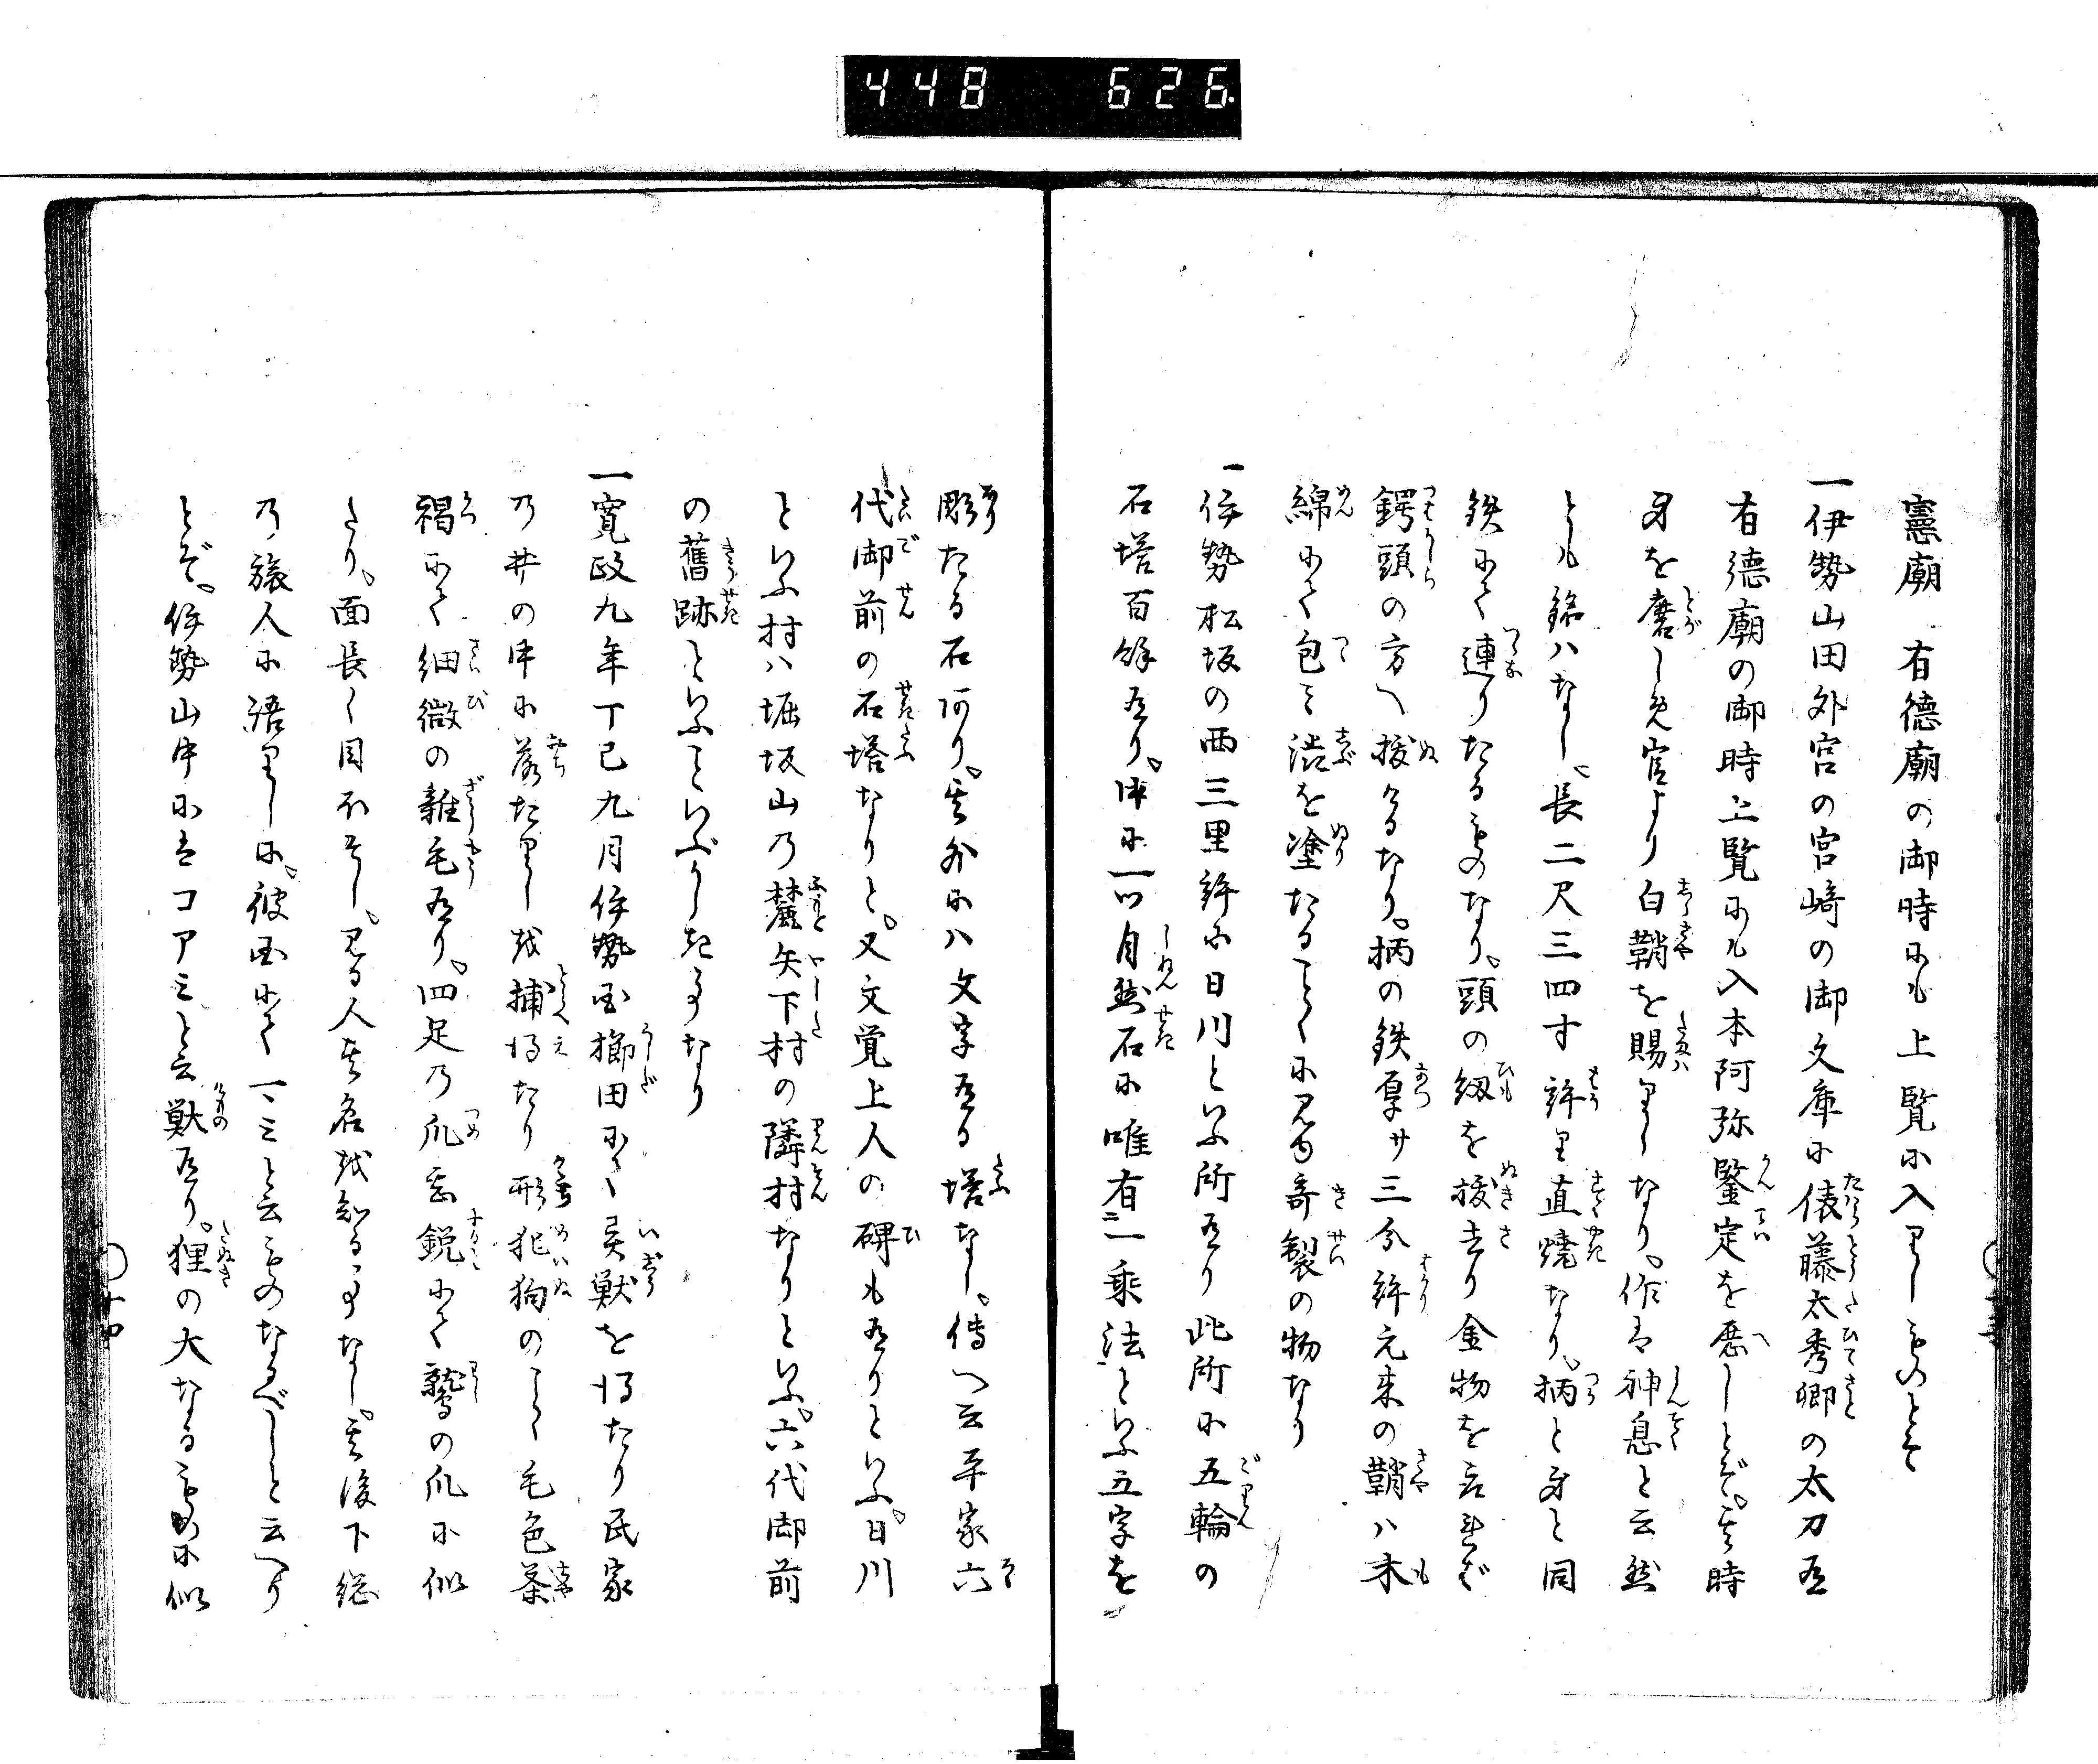 448 626
憲廟 有徳廟の御時にも上覧に入りしものとそ
一伊勢山田外宮の宮崎の御文庫に俵藤太秀郷の太刀有
有徳廟の御時上覧にも入本阿弥鑒定を歴しとぞ。其時
身を磨しめ官より白鞘を賜りしなり。作は神息と云然
とも銘ハなし。長二尺三四寸許り直焼なり。柄と身と同
鉄にて連りたるものなり。頭の紐を抜去り金物を
鍔頭の方へ抜るなり。柄の鉄厚サ三分許元来の鞘ハ木
綿にて包ミ渋を塗たることくに見ゆ奇製の物なり
一伊勢松坂の西三里許に日川といふ所有り此所に五輪の
石塔百餘有り。中に一ツ自然石に唯有一乗法といふ五字を
彫たる石阿り。其外にハ文字有る塔なし。傳へ云平家六
代御前の石塔なりと。又文覚上人の碑も有りといふ。日川
といふ村ハ堀坂山乃麓矢下村の隣村なりといふ。六代御前
の舊跡といふこといぶかしき事なり
一寛政九年丁巳九月伊勢国櫛田にて異獣を得たり民家
乃井の中に落たりしを捕得たり形犯狗のことく毛色茶
褐にて細微の雑毛有り。四足乃爪甚鋭にて鷲の爪に似
たり。面長く目不そし。見る人其名を知る事なし。其後下総
乃旅人に語りしに。彼国にて一ミと云ものなるべしと云へり
とぞ。伊勢山中にはコアミと云獣有り。狸の大なるものに似
十四